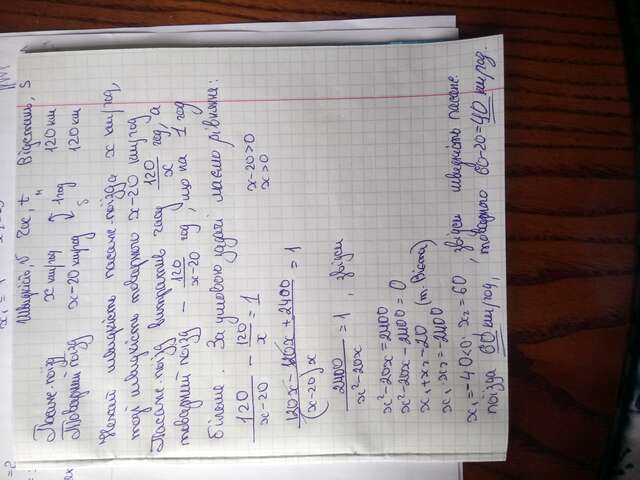 Швидкість, v Час, t Відстань, s
Пасаж. поїзд x км/год 1год 120 км
Товарний поїзд x-20 км/год 120 км
Нехай швидкість пасаж. поїзда x км/год,
тоді швидкість товарного x-20 км/год
Пасаж. поїзд витратив часу 120/x год, а
товарний поїзд - 120/x-20 год, що на 1 год
більше. За умовою задачі маємо рівняння:
120/x-20 - 120/x = 1 x-20>0
x>0
120x-120x+2400/(x-20)x = 1
2400/x²-20x = 1, звідси
x²-20x=2400
x²-20x-2400=0
x₁+x₂=20 (т. Вієта)
x₁·x₂=-2400
x₁=-40<0; x₂=60, звідси швидкість пасаж.
поїзда 60 км/год, товарного 60-20=40 км/год.